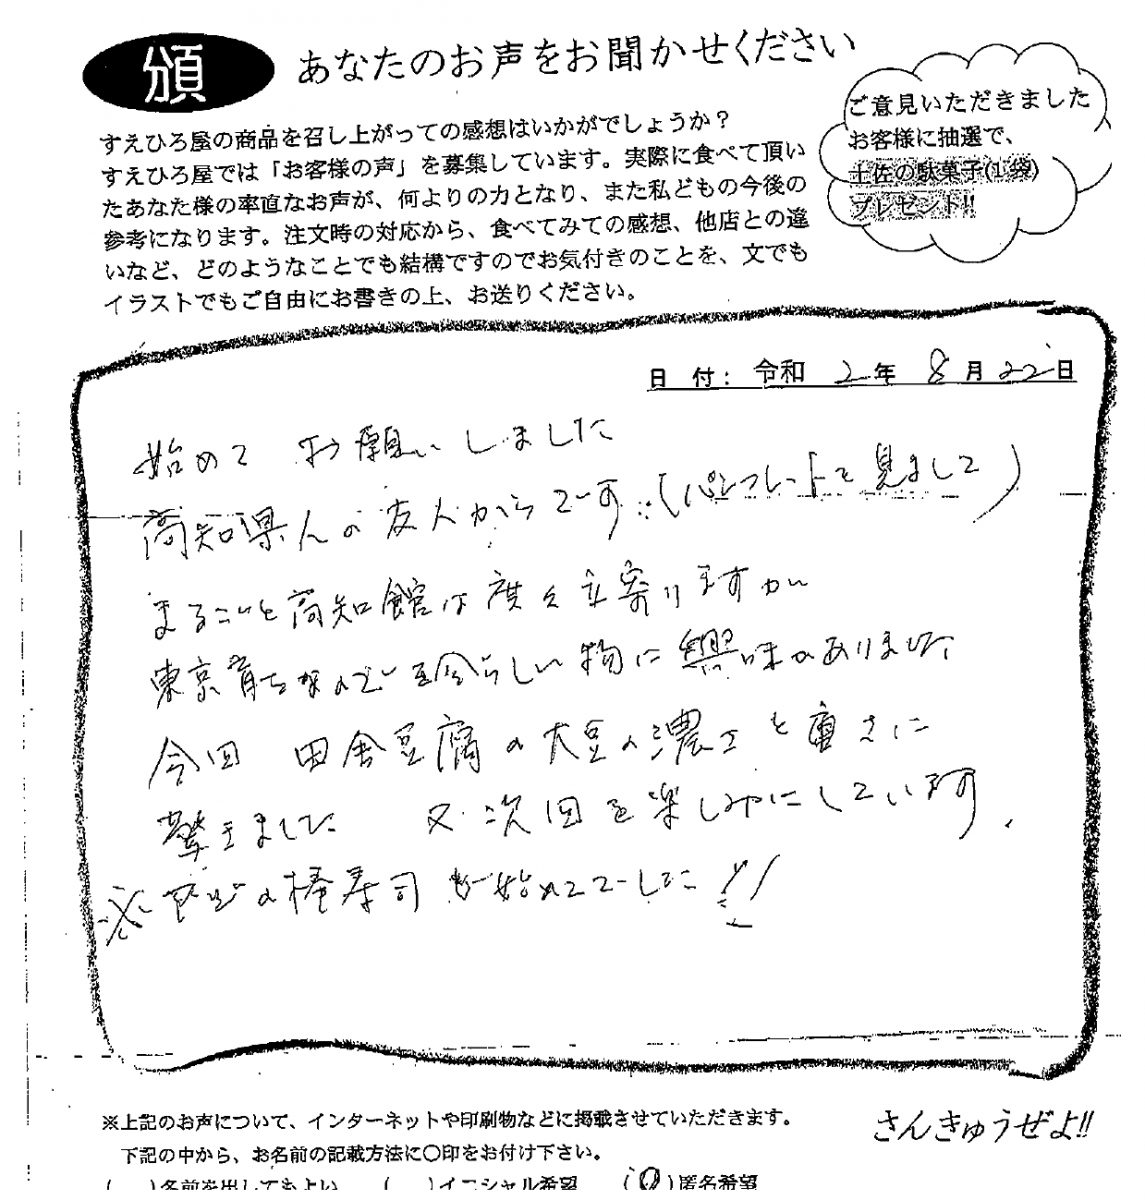 頒
あなたのお声をお聞かせください
すえひろ屋の商品を召し上がっての感想はいかがでしょうか？
すえひろ屋では「お客様の声」を募集しています。実際に食べて頂い
たあなた様の率直なお声が、何よりの力となり、また私どもの今後の
参考になります。注文時の対応から、食べてみての感想、他店との違
いなど、どのようなことでも結構ですのでお気付きのことを、文でも
イラストでもご自由にお書きの上、お送りください。
ご意見いただきました
お客様に抽選で、
土佐の駄菓子(1袋)
プレゼント!!
日 付：令和 2 年 8 月 22 日
始めて お願いしました
高知県人の友人からです。(パンフレットを見まして)
まるごと高知館は度々立寄りますが
東京育ちなので珍らしい物に興味がありました
今回 田舎豆腐の大豆の濃さと重さに
驚きました 又、次回を楽しみにしています。
※ の棒寿司が始めてでした!!
※上記のお声について、インターネットや印刷物などに掲載させていただきます。
下記の中から、お名前の記載方法に〇印をお付け下さい。
( )名前を出してもよい ( )イニシャル希望 (〇)匿名希望
さんきゅうぜよ!!